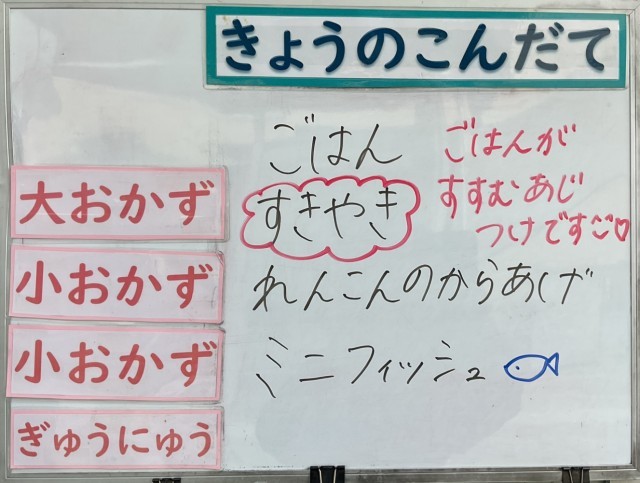 きょうのこんだて
ごはん
ごはんが
すすむあじ
つけです
大おかず
すきやき
小おかず
れんこんのからあげ
小おかず
ミニフィッシュ
ぎゅうにゅう